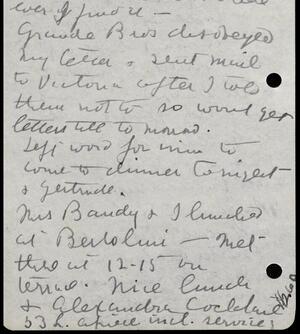 Grande Bros disobeyed
my letter & sent mail
to Victoria after I told
them not to so wont get
letters till to morrow.
Left word for him to
come to dinner tonight
& Gertrude.
Mrs Bandy & I lunched
at Bertolini — met
there at 12-15 on
terrace. Nice lunch
& Alexandra Cockland
53 L. apiece incl. service